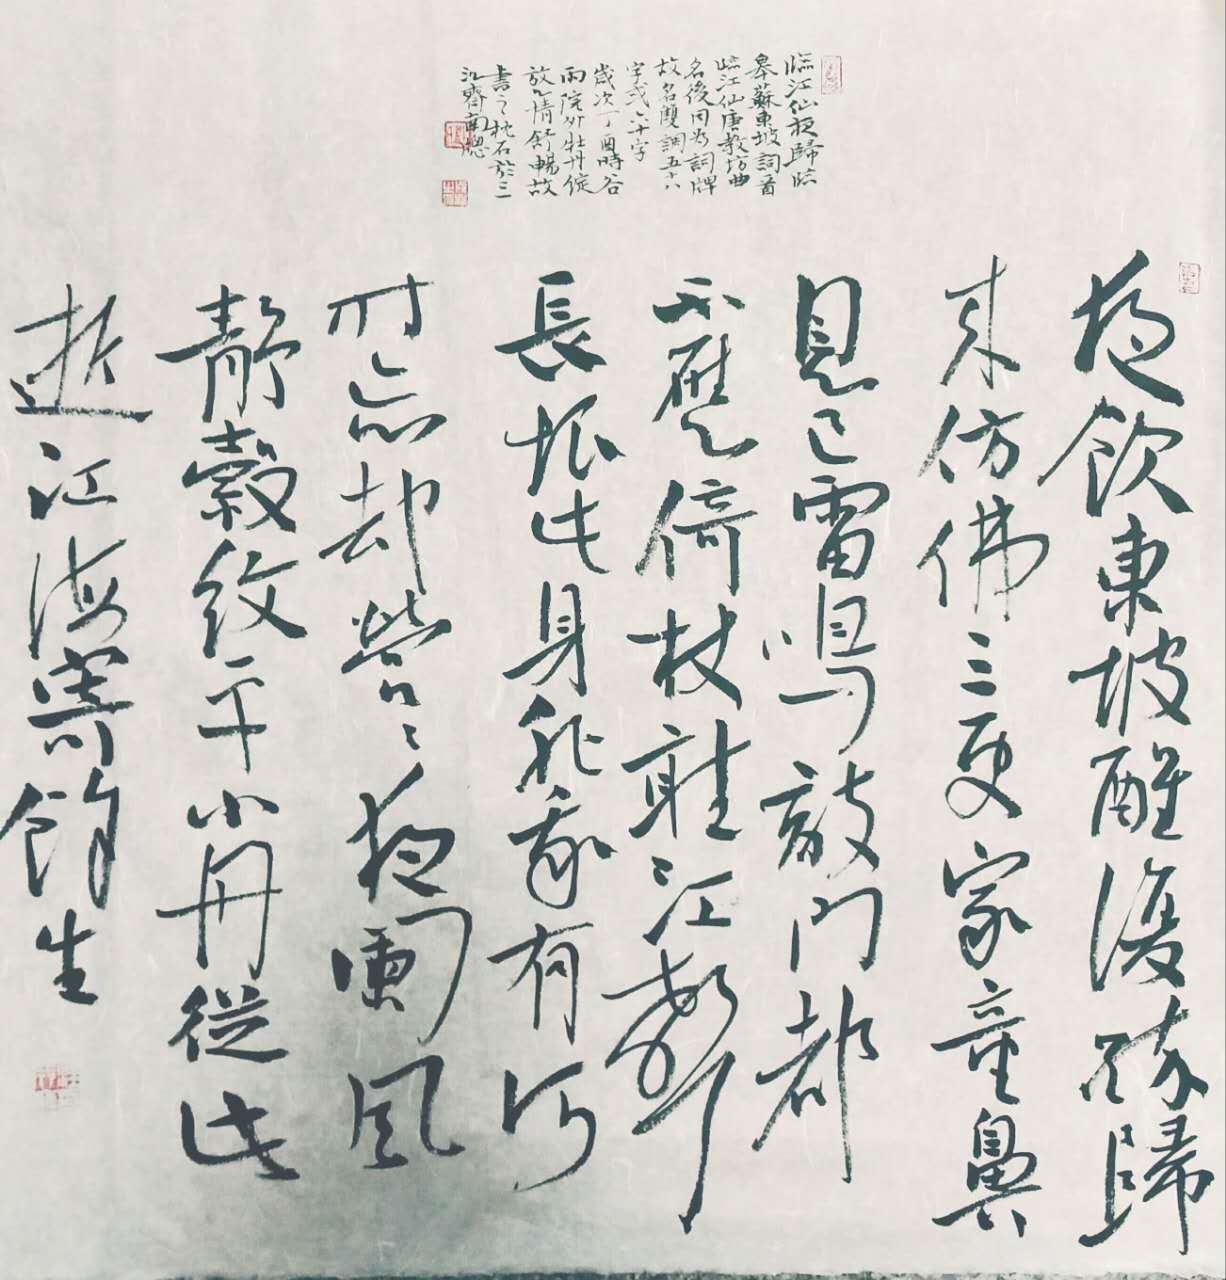 臨江仙夜歸臨
皋蘇東坡詞首
臨江仙唐教坊曲
名後用為詞牌
故名雙調五十八
字或六十字
歲次丁酉時谷
雨院外牡丹綻
放心情舒暢故
書之枕石於三
江齊南窓
夜飲東坡醒復醉歸
來仿佛三更家童鼻
息已雷鳴敲門都
不應倚杖聽江聲
長恨此身非我有何
時忘却營々夜闌風
靜縠紋平小舟從此
逝江海寄餘生